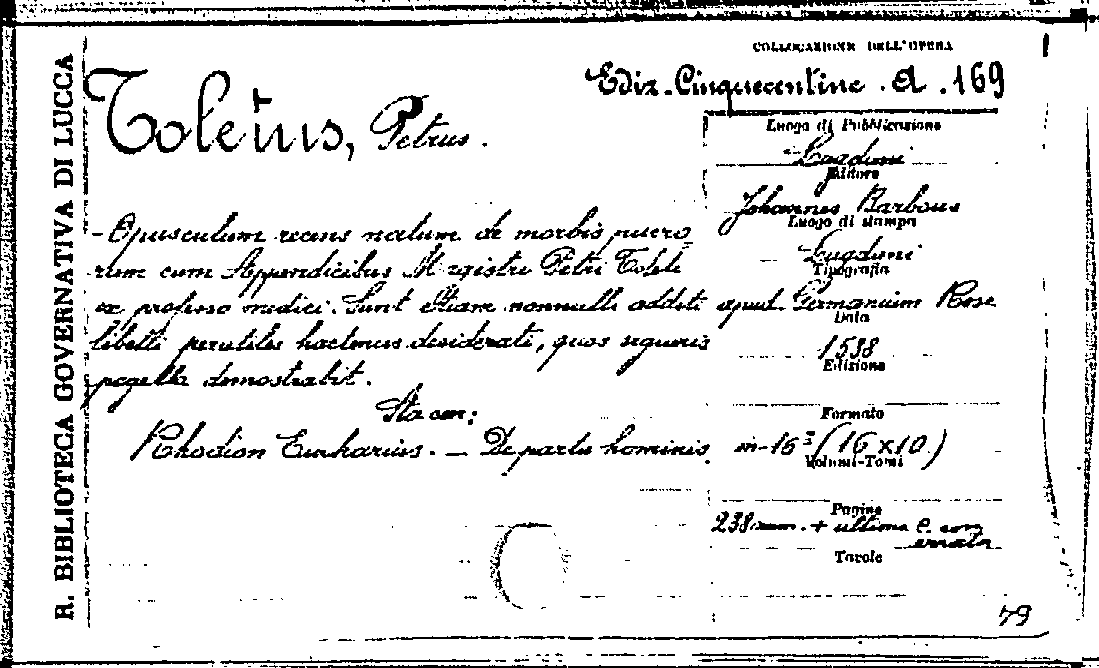 R. BIBLIOTECA GOVERNATIVA DI LUCCA
COLLOCAZIONE DELL'OPERA
Ediz. Cinquecentine . A . 169
Toletus, Petrus.
Luogo di Pubblicazione
Lugduni
Editore
Johannes Barbous
Luogo di stampa
Lugduni
Tipografia
apud Germanium Rose
Data
1538
Edizione
Formato
in-16° (16 x 10)
Volumi-Tomi
Pagine
238 num. + ultima c. con
errata
Tavole
- Opusculum recens natum de morbis puero
rum cum Appendicibus Magistri Petri Toleti
ex professo medici. Sunt etiam nonnulli additi
libelli perutiles hactenus desiderati, quos sequens
pagella demostrabit.
Sta con:
Rhodion Eucharius. - De partu hominis
79